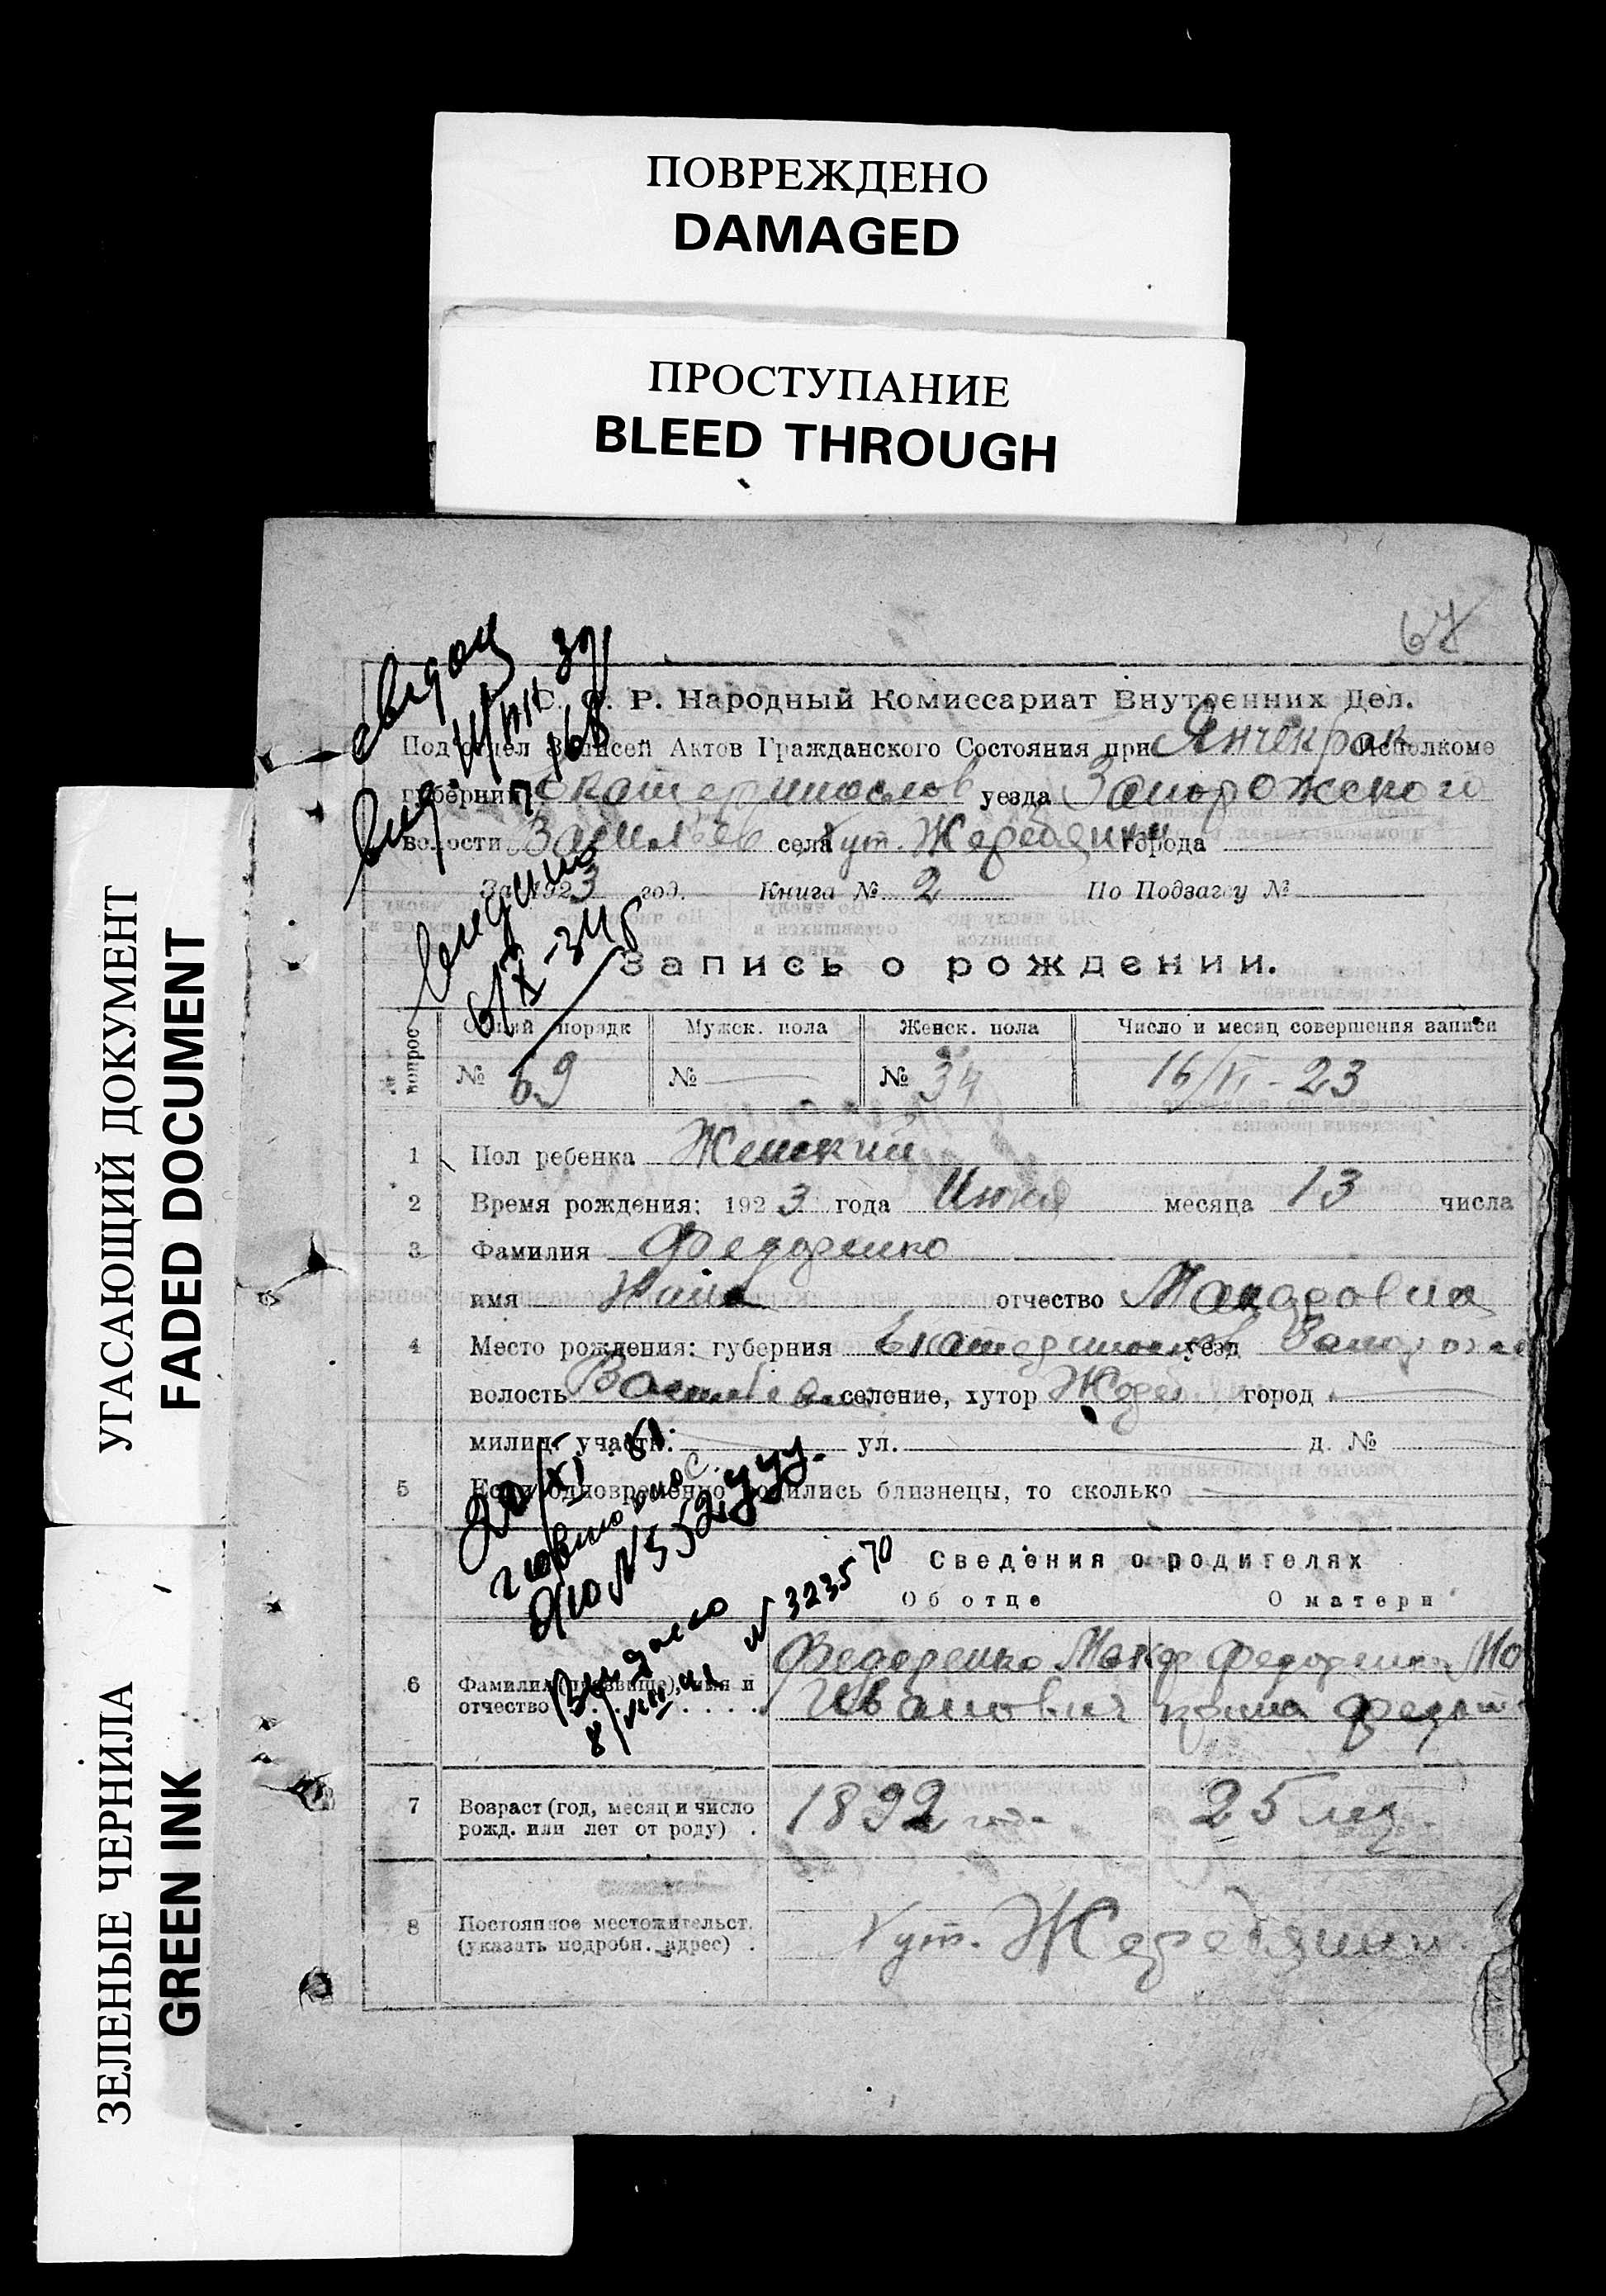 ПОВРЕЖДЕНО
DAMAGED
ПРОСТУПАНИЕ
BLEED THROUGH
УГАСАЮЩИЙ ДОКУМЕНТ
FADED DOCUMENT
ЗЕЛЕНЫЕ ЧЕРНИЛА
GREEN INK
67
С. Р. Народный Комиссариат Внутренних Дел.
Подотдел Записей Актов Гражданского Состояния при Янчекрак Исполкоме
губернии Екатеринослов уезда Запорожского
волости Васильев села хут. Жеребцы города
За 1923 год. Книга № 2 По Подзагсу №
видано
6/X-34 г
Запись о рождении.
№ вопрос Общий порядк Мужск. пола Женск. пола Число и месяц совершения записи
№ 69 № № 34 16/VI-23
1 Пол ребенка Женский
2 Время рождения: 1923 года Июня месяца 13 числа
3 Фамилия Федоренко
имя отчество Макаровна
4 Место рождения: губерния Екатеринослав уезд Запорож
волость Васильевск селение, хутор Жереб город
милиц. участк. ул. д. №
5 Если одновременно родились близнецы, то сколько
20/XI 51
№ 552
Сведения о родителях
Об отце О матери
Выдано
8/VIII № 323570
6 Фамилия (прозвище), имя и отчество Федоренко Макар Иванович Федоренко
7 Возраст (год, месяц и число рожд. или лет от роду) 1892 года 25 лет
8 Постоянное местожительст. (указать подробн. адрес) Хут.